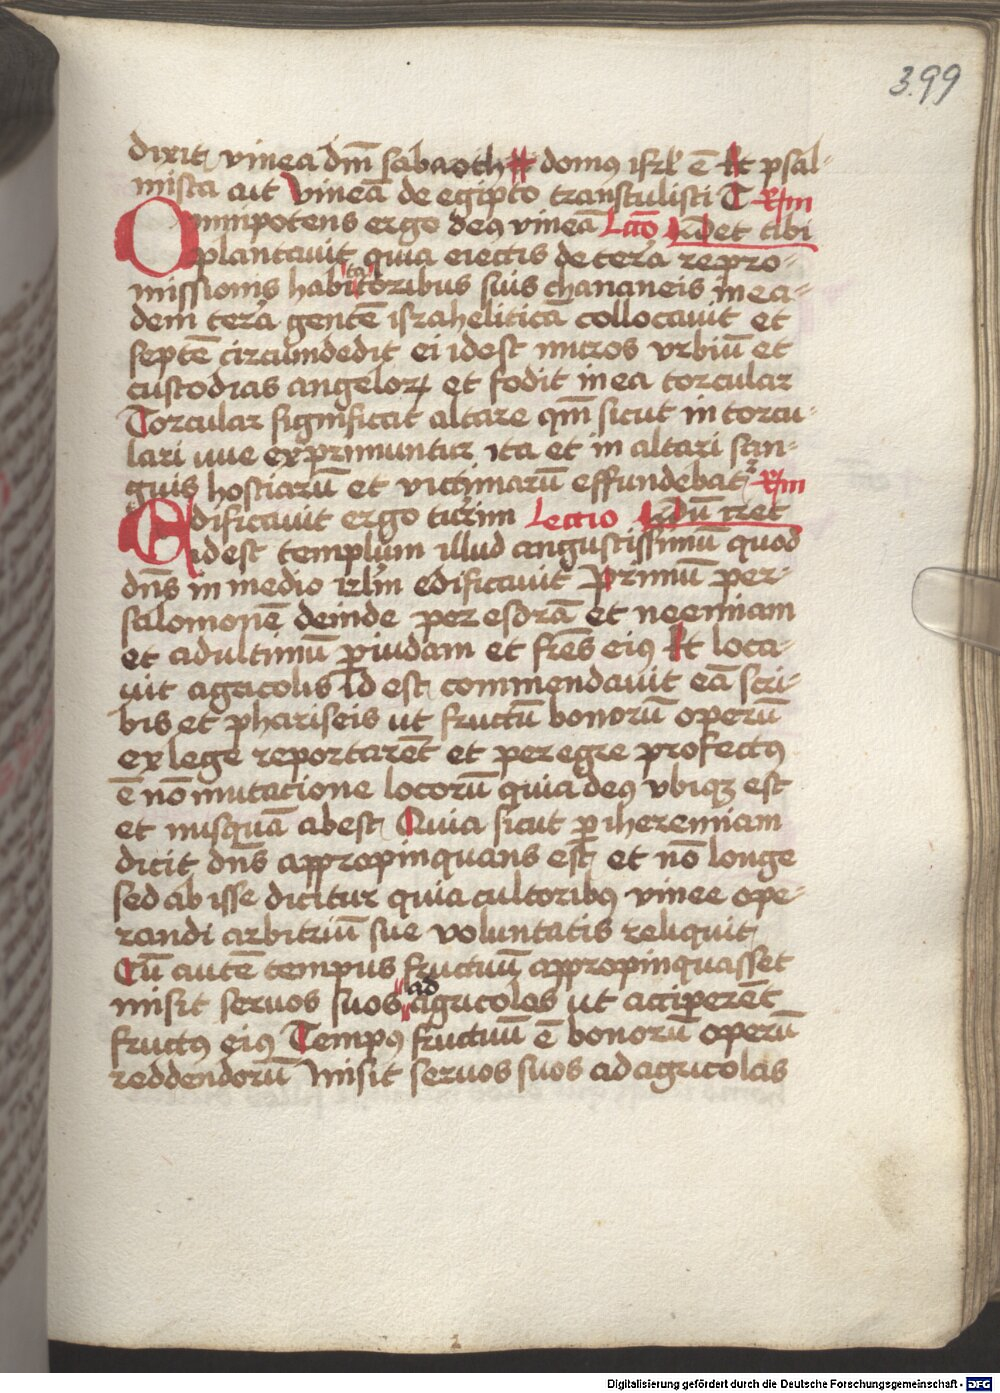 399
dixit vinea dm̄ sabaoth domus isrl̄ ē Et psal-
mista ait Vineā de egipto transtulisti T Rm
Omnipotens ergo deus vineā Lcō Det tibi
plantavit quia eiectis de tera repro-
missionis habitatoribus suis chananeis in ea-
dem tera gentē israheliticā collocavit et
septē circumdedit ei idest muros vrbiū et
custodias angeloꝝ et fodit in ea torcular
Torcular significat altare qm̄ sicut in torcu-
lari uue exprimuntur ita et in altari san-
guis hostiarū et victimarū effundebat᷑ Rm
Edificavit ergo turim Lectio Dū iret
idest templum illud angustissimū quod
dn̄s in medio irlm̄ edificavit Primū per
salomonē deinde per esdrā et neemiam
et adultimū ꝑ iudam et fr̄es eius Et loca-
uit agricolis id est commendavit eā scri-
bis et phariseis ut fructū bonorū operū
ex lege reportarēt et peregre profectus
ē nō mutatione locorū quia deus vbiqꝫ est
et nusquā abest Quia sicut ꝑ iheremiam
dicit dn̄s appropinquans est et nō longe
sed abisse dicitur quia cultoribus vinee ope-
randi arbitriū sue voluntatis reliquit
Cū autē tempus fructuū appropinquasset
misit seruos suos ad agricolas ut acciperēt
fructus eius Tempus fructuū ē bonorū operū
reddendorū Misit seruos suos ad agricolas
Digitalisierung gefördert durch die Deutsche Forschungsgemeinschaft - DFG